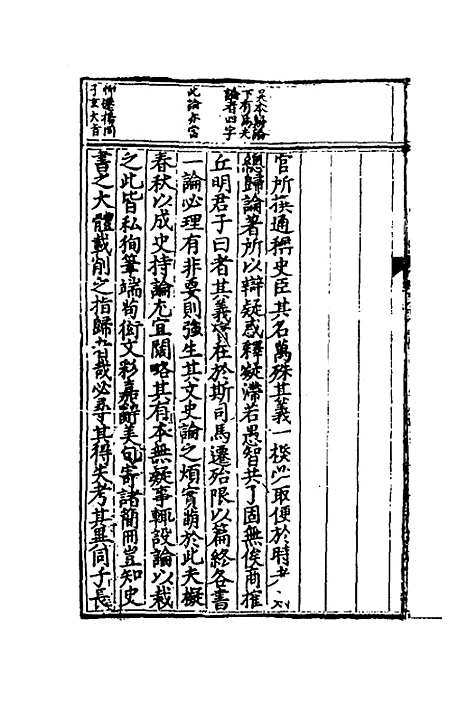 官所撰通稱史臣其名萬殊其義一揆以取便於時者
總歸論著所以辯疑惑釋凝滯若愚智共了固無俟商搉
丘明君子曰者其義實在於斯司馬遷殆限以篇終各書
一論必理有非要則強生其文史論之煩實萌於此夫擬
春秋以成史持論尤宜闊略其有本無疑事輒設論以裁
之此皆私徇筆端苟衒文彩嘉辭美句寄諸簡冊豈知史
書之大體載削之指歸者哉必尋其得失考其異同子長
下有焉夫
論者四字
此論亦當